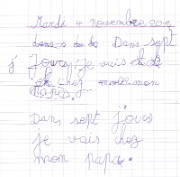 Mardi 4 novembre 201
Dans sept
j' jours, je vais
chez mon
papa.
Dans sept jours
je vais chez
mon papa.